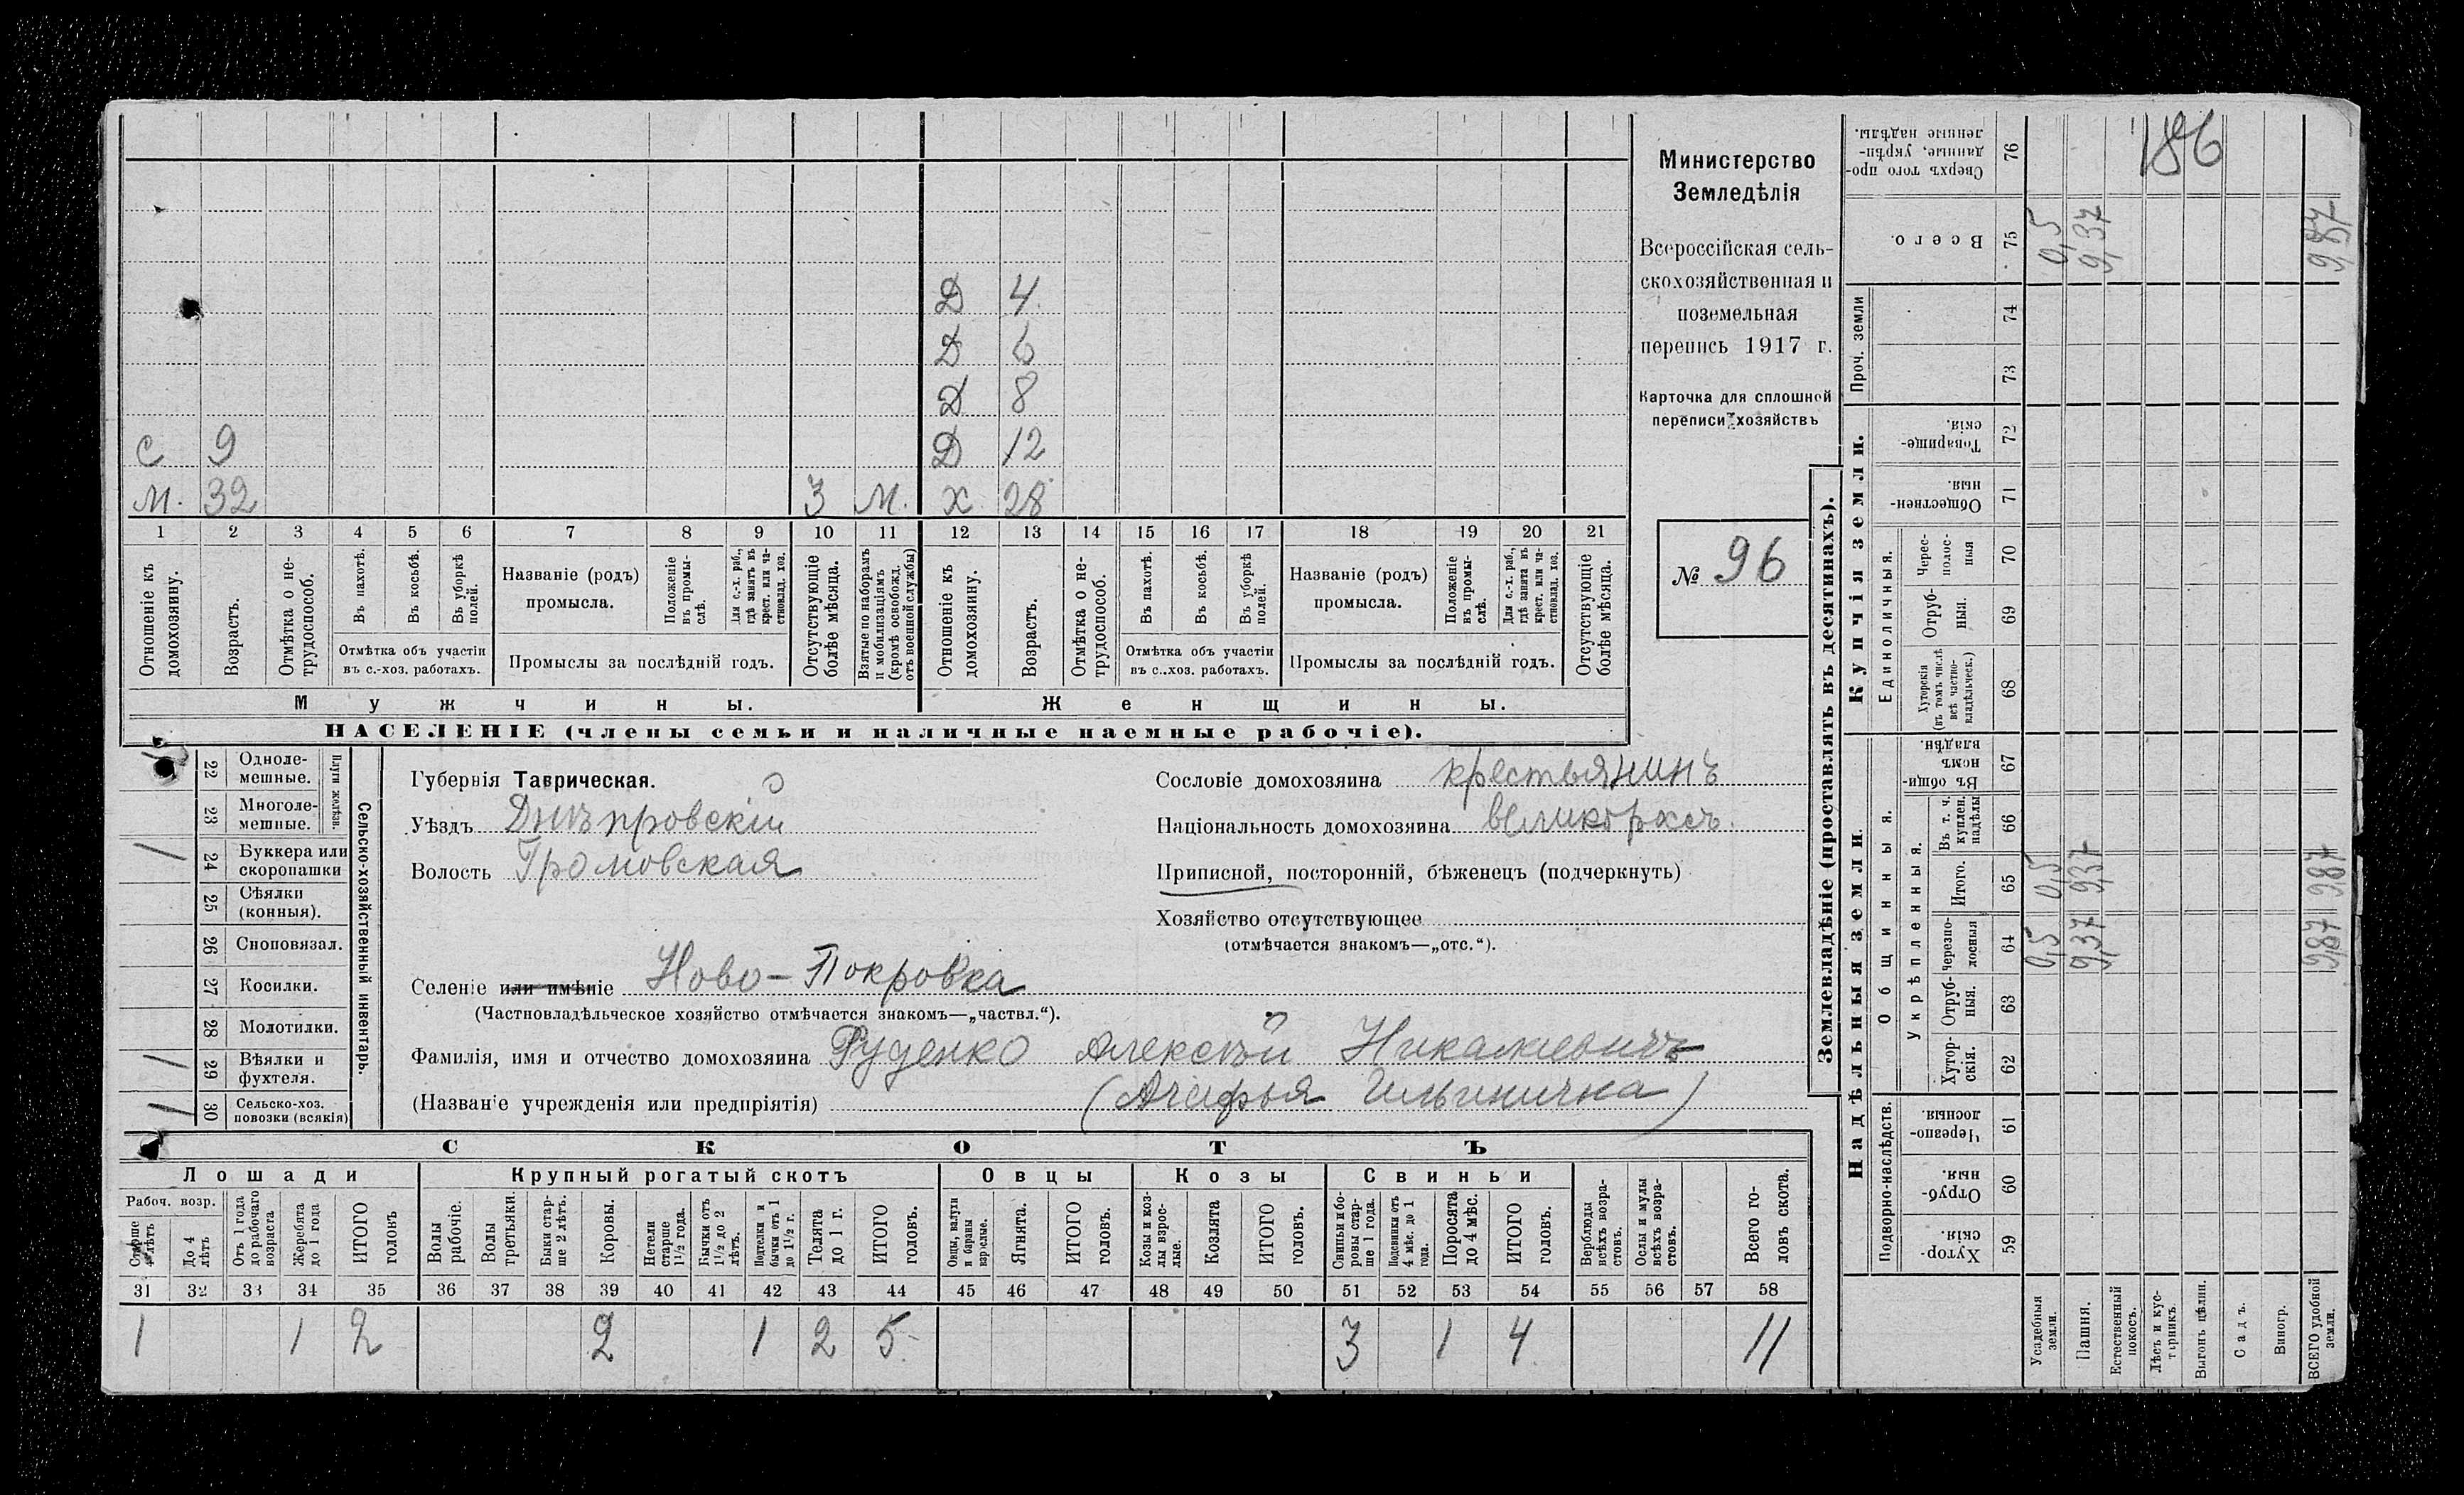 Министерство
Земледѣлія
Всероссійская сель-
скохозяйственная и
поземельная
перепись 1917 г.
Карточка для сплошной
переписи хозяйствъ
№ 96
Д 4
Д 6
Д 8
с 9 Д 12
м. 32 3 м. х 28
1 2 3 4 5 6 7 8 9 10 11 12 13 14 15 16 17 18 19 20 21
Отношеніе къ домохозяину.
Возрастъ.
Отмѣтка о не-трудоспособ.
Въ пахотѣ.
Въ косьбѣ.
Въ уборкѣ полей.
Отмѣтка объ участіи
въ с.-хоз. работахъ.
Названіе (родъ)
промысла.
Положеніе въ промы-слѣ.
Для с.-х. раб., гдѣ занятъ въ крест. или ча-стновлад. хоз.
Промыслы за послѣдній годъ.
Отсутствующіе болѣе мѣсяца.
Взятые по наборамъ и мобилизаціямъ (кромѣ освобожд. отъ военной службы)
Отношеніе къ домохозяину.
Возрастъ.
Отмѣтка о не-трудоспособ.
Въ пахотѣ.
Въ косьбѣ.
Въ уборкѣ полей.
Отмѣтка объ участіи
въ с..хоз. работахъ.
Названіе (родъ)
промысла.
Положеніе въ промы-слѣ.
Для с.-х. раб., гдѣ занята въ крест. или ча-стновлад. хоз.
Промыслы за послѣдній годъ.
Отсутствующіе болѣе мѣсяца.
Мужчины. Женщины.
НАСЕЛЕНІЕ (члены семьи и наличные наемные рабочіе).
Сельско-хозяйственный инвентарь.
Плуги желѣз.
22 Одноле-мешные.
23 Многоле-мешные.
/ 24 Буккера или скоропашки
25 Сѣялки (конныя).
26 Сноповязал.
27 Косилки.
28 Молотилки.
/ 29 Вѣялки и фухтеля.
/ 30 Сельско-хоз. повозки (всякія)
Губернія Таврическая.
Уѣздъ Днѣпровскій
Волость Громовская
Сословіе домохозяина крестьянинъ
Національность домохозяина великорссъ.
Приписной, посторонній, бѣженецъ (подчеркнуть)
Хозяйство отсутствующее
(отмѣчается знакомъ—„отс.“).
Селеніе или имѣніе Ново-Покровка
(Частновладѣльческое хозяйство отмѣчается знакомъ—„частвл.“).
Фамилія, имя и отчество домохозяина Руденко Алексѣй
(Названіе учрежденія или предпріятія) (Агафья Ильинична)
СКОТЪ
Лошади Крупный рогатый скотъ Овцы Козы Свиньи
Рабоч. возр.
Старше 4 лѣтъ
До 4 лѣтъ
Отъ 1 года до рабочаго возраста
Жеребята до 1 года
ИТОГО головъ
Волы рабочіе.
Волы третьяки.
Быки стар-ше 2 лѣтъ.
Коровы.
Нетели старше 1½ года.
Бычки отъ 1½ до 2 лѣтъ.
Подтелки и бычки отъ 1 до 1½ г.
Телята до 1 г.
ИТОГО головъ.
Овцы, валухи и бараны взрослые.
Ягнята.
ИТОГО головъ.
Козы и коз-лы взрос-лые.
Козлята
ИТОГО головъ.
Свиньи и бо-ровы стар-ше 1 года.
Подсвинки отъ 4 мѣс. до 1 года.
Поросята до 4 мѣс.
ИТОГО головъ.
Верблюды всѣхъ возра-стовъ.
Ослы и мулы всѣхъ возра-стовъ.
Всего го-ловъ скота.
31 32 33 34 35 36 37 38 39 40 41 42 43 44 45 46 47 48 49 50 51 52 53 54 55 56 57 58
1 1 2 2 1 2 5 3 1 4 11
Землевладѣніе (проставлять въ десятинахъ).
Надѣльныя земли. Купчія земли. Проч. земли
Подворно-наслѣдств. Общинныя. Единоличныя.
Укрѣпленныя.
Хутор-скія. 59
Отруб-ныя. 60
Черезпо-лосныя. 61
Хутор-скія. 62
Отруб-ныя. 63
Черезпо-лосныя 64
Итого. 65
Въ т. ч. куплен. надѣлы 66
Въ общи-номъ владѣн. 67
Хуторскія (въ томъ числѣ всѣ частно-владѣльческ.) 68
Отруб-ныя. 69
Черес-полос-ныя 70
Обществен-ныя. 71
Товарище-скія. 72
73
74
Всего. 75
Сверхъ того про-данные, укрѣп-ленные надѣлы. 76
Усадебныя земли. 0,5 0,5 0,5
Пашня. 9,37 9,37 9,37
Естественный покосъ.
Лѣсъ и кус-тарникъ.
Выгонъ цѣлин.
Садъ.
Виногр.
ВСЕГО удобной земли. 9,87 9,87 9,87
186